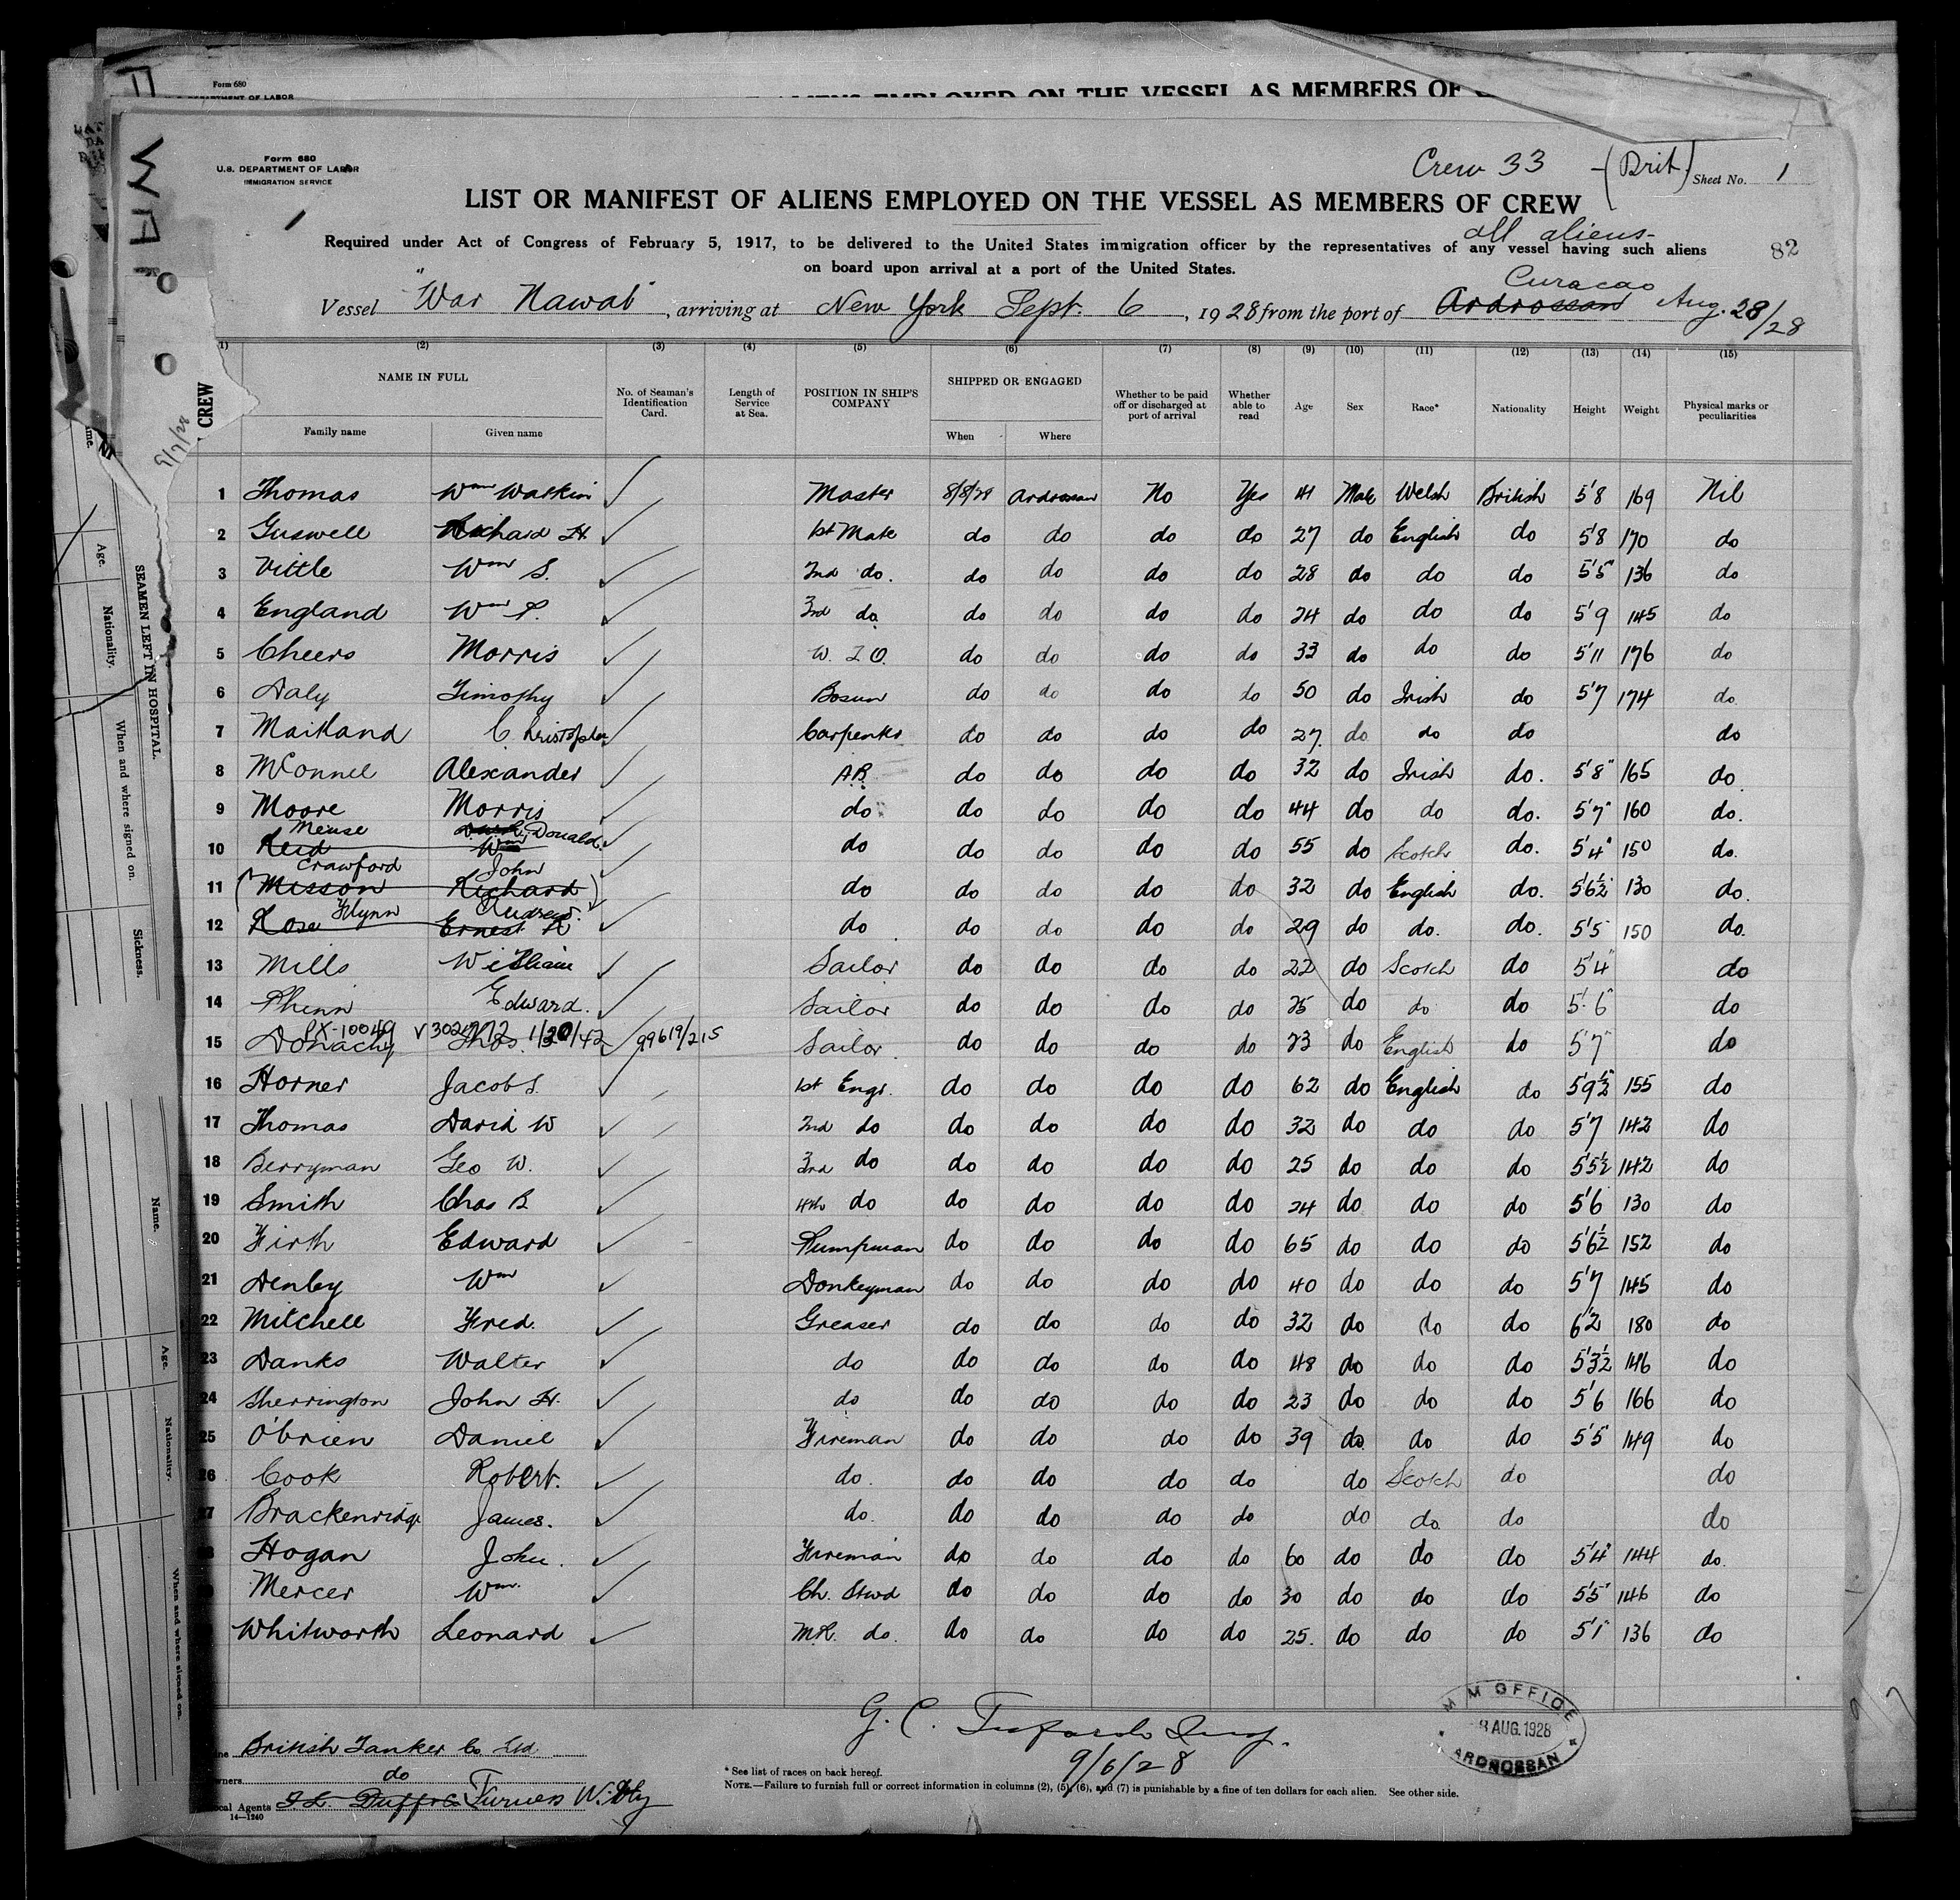 Form 680
U.S. DEPARTMENT OF LABOR
ALIENS EMPLOYED ON THE VESSEL AS MEMBERS OF
WA
Crew 33 - (Brit.) Sheet No. 1
Form 680
U.S. DEPARTMENT OF LABOR
IMMIGRATION SERVICE
LIST OR MANIFEST OF ALIENS EMPLOYED ON THE VESSEL AS MEMBERS OF CREW
all aliens-
Required under Act of Congress of February 5, 1917, to be delivered to the United States immigration officer by the representatives of any vessel having such aliens
on board upon arrival at a port of the United States.
82
Curacao
Vessel "War Nawab", arriving at New York Sept. 6, 1928 from the port of Ardrossan Aug. 28/28
(1) (2) (3) (4) (5) (6) (7) (8) (9) (10) (11) (12) (13) (14) (15)
CREW NAME IN FULL No. of Seaman's Identification Card. Length of Service at Sea. POSITION IN SHIP'S COMPANY SHIPPED OR ENGAGED Whether to be paid off or discharged at port of arrival Whether able to read Age Sex Race* Nationality Height Weight Physical marks or peculiarities
Family name Given name When Where
1 Thomas Wm Watkin Master 8/8/28 Ardrossan No Yes 41 Male Welsh British 5'8 169 Nil
2 Guswell Richard H. 1st Mate do do do do 27 do English do 5'8 170 do
3 Vittle Wm S. 2nd do. do do do do 28 do do do 5'5" 136 do
4 England Wm P. 3rd do. do do do do 24 do do do 5'9 145 do
5 Cheers Morris W.T.O. do do do do 33 do do do 5'11 176 do
6 Daly Timothy Bosun do do do do 50 do Irish do 5'7 174 do
7 Maitland Christopher Carpenter do do do do 27. do do do do
8 McConnel Alexander A.B. do do do do 32 do Irish do. 5'8" 165 do.
9 Moore Morris do do do do do 44 do do do. 5'7" 160 do.
Meuse Donald.
10 Reid Wm do do do do do 55 do Scotch do. 5'4" 150 do.
Crawford John
11 (Misson Richard) do do do do do 32 do English do. 5'6½ 130 do.
Flynn Andrew.
12 Rose Ernest R do do do do do 29 do do. do. 5'5 150 do.
13 Mills William Sailor do do do do 22 do Scotch do 5'4" do
14 Phinn Edward. Sailor do do do do 25 do do do 5'6" do
PX-10049 V302472 1/30/42 99619/215
15 Donachy Thos. Sailor. do do do do 23 do English do 5'7" do
16 Horner Jacob S. 1st Engr. do do do do 62 do English do 5'9½ 155 do
17 Thomas David W 2nd do do do do do 32 do do do 5'7 142 do
18 Berryman Geo W. 3rd do do do do do 25 do do do 5'5½ 142 do
19 Smith Chas B 4th do do do do do 24 do do do 5'6 130 do
20 Firth Edward Pumpman do do do do 65 do do do 5'6½ 152 do
21 Denby Wm Donkeyman do do do do 40 do do do 5'7 145 do
22 Mitchell Fred. Greaser do do do do 32 do do do 6'2 180 do
23 Danks Walter do do do do do 48 do do do 5'3½ 146 do
24 Sherrington John H. do do do do do 23 do do do 5'6 166 do
25 O'brien Daniel Fireman do do do do 39 do do do 5'5 149 do
26 Cook Robert. do. do do do do do Scotch do do
27 Brackenridge James. do. do do do do do do do do
Hogan John. Fireman do do do do 60 do do do 5'4" 144 do.
Mercer Wm. Ch. Stwd do do do do 30 do do do 5'5" 146 do
Whitworth Leonard M.R. do. do do do do 25. do do do 5'1" 136 do
British Tanker Co Ltd
Owners do
Local Agents Furness Withy
14—1240
G. C.
9/6/28
* See list of races on back hereof.
NOTE.—Failure to furnish full or correct information in columns (2), (5), (6), and (7) is punishable by a fine of ten dollars for each alien. See other side.
M M OFFICE
8 AUG. 1928
ARDROSSAN
SEAMEN LEFT IN HOSPITAL.
Age.
Nationality.
When and where signed on.
Sickness.
Name.
Age.
Nationality.
When and where signed on.